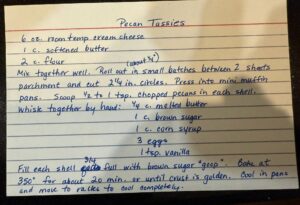 Pecan Tassies
6 oz. room temp cream cheese
1 c. softened butter
2 c. flour
(about 1/8")
Mix together well. Roll out in small batches between 2 sheets
parchment and cut 2 1/4 in. circles. Press into mini muffin
pans. Scoop 1/2 to 1 tsp. chopped pecans in each shell.
Whisk together by hand: 1/4 c. melted butter
1 c. brown sugar
1 c. corn syrup
3 eggs
1 tsp. vanilla
Fill each shell 3/4 full with brown sugar "goop". Bake at
350° for about 20 min. or until crust is golden. Cool in pans
and move to racks to cool completely.